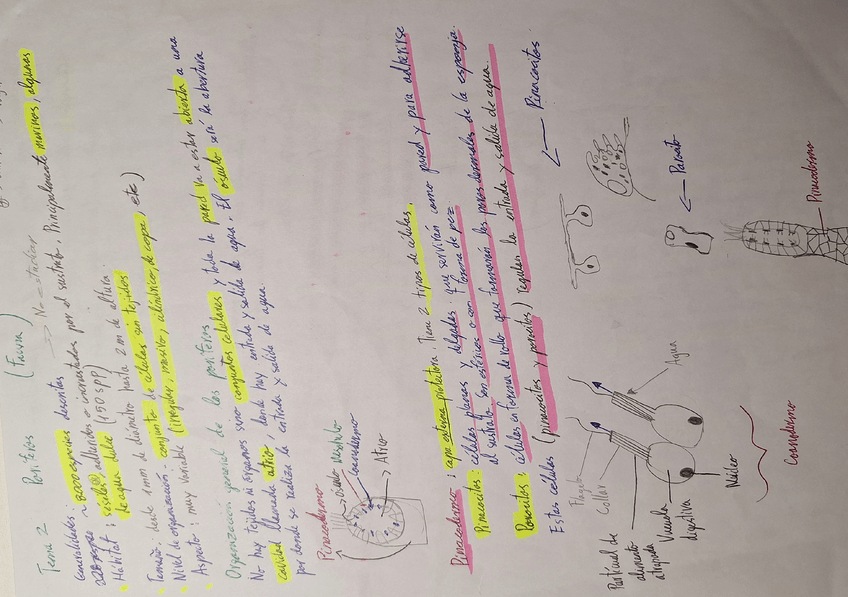 (Fauna)
Tema 2 Poríferos
→ No estudiar
Generalidades: ~ 8000 especies descritas
sésiles adheridos o incrustados por el sustrato. Principalmente marinos, algunas
de agua dulce (150 spp)
• Hábitat:
• Tamaño: desde 1mm de diámetro hasta 2 m de altura
• Nivel de organización: conjunto de células sin tejidos
• Aspecto: muy variable (irregular, masivo, cilíndrico, de copa, etc)
Organización general de los poríferos
No hay tejidos ni órganos sino conjuntos celulares y toda la pared va a estar abierta a una
cavidad llamada atrio, donde hay entrada y salida de agua. El ósculo será la abertura
por donde se realiza la entrada y salida de agua.
Pinacodermo
Ósculo
coanodermo
Atrio
Pinacodermo: capa externa protectora. Tiene 2 tipos de células.
Pinacocitos: células planas y delgadas que servirán como pared y para adherirse
al sustrato. Son esféricos o con forma de pez
Porocitos: células en forma de rollo que formarán los poros dermales de la esponja.
Estas células (pinacocitos y porocitos) regulan la entrada y salida de agua.
← Pinacocitos
← Porocito
Pinacodermo
Flagelo
Collar
Agua
Partícula de
alimento
atrapada
Vacuola
digestiva
Núcleo
Coanodermo